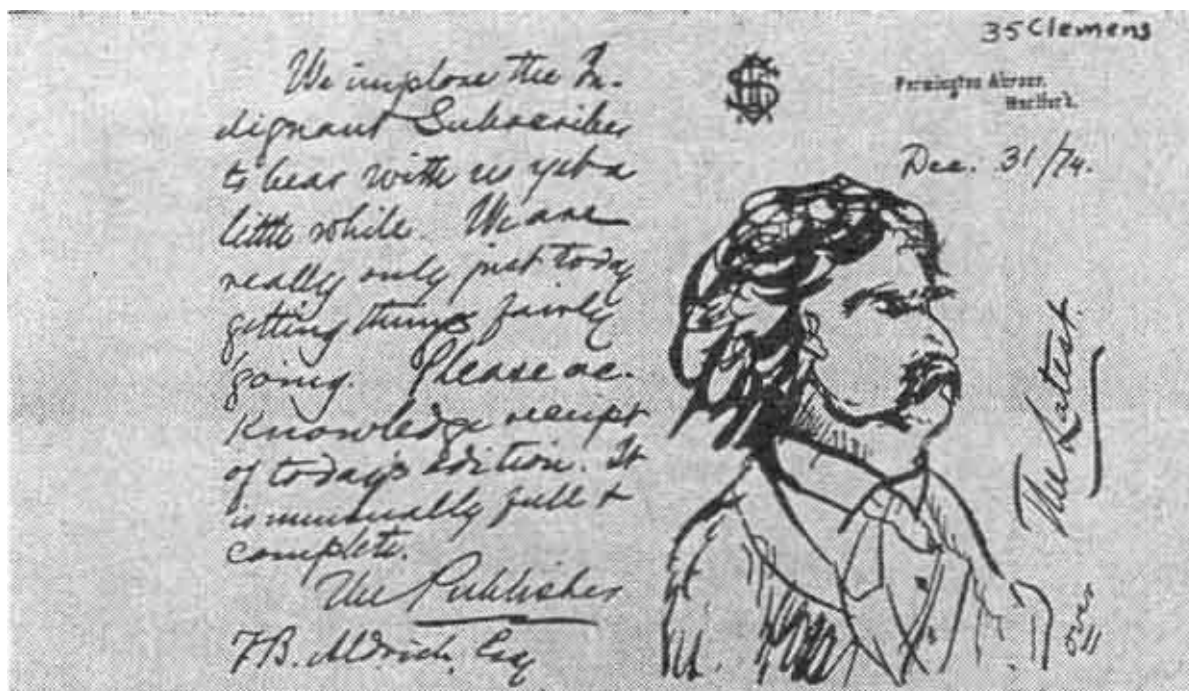 We implore the In-
dignant Subscriber
to bear with us yet a
little while. We are
really only just today
getting things fairly
going. Please ac-
knowledge receipt
of today's edition. It
is unusually full &
complete.
The Publisher
T.B. Aldrich, Esq
35 Clemens
Farmington Avenue,
Hartford.
Dec. 31/74.
The Latest.